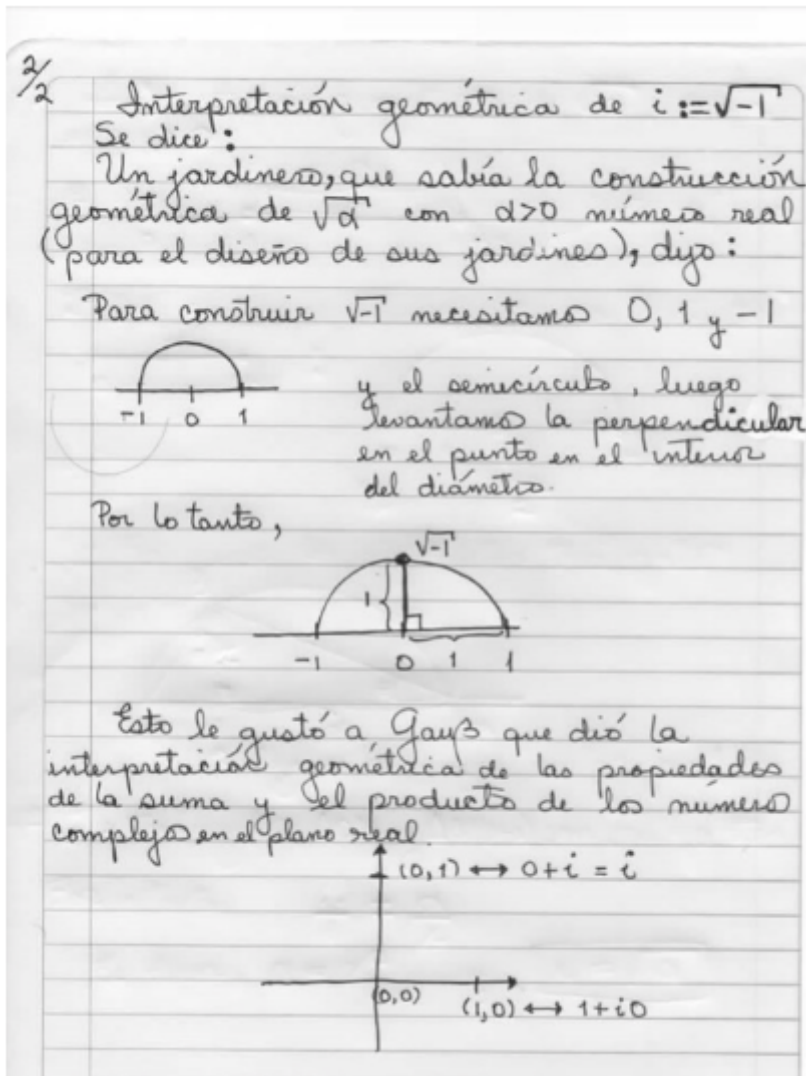 2/2
Interpretación geométrica de i := √-1
Se dice:
Un jardinero, que sabía la construcción
geométrica de √α con α>0 número real
(para el diseño de sus jardines), dijo:
Para construir √-1 necesitamos 0, 1 y -1
y el semicírculo, luego
-1 0 1
levantamos la perpendicular
en el punto en el interior
del diámetro.
Por lo tanto,
√-1
1
-1 0 1 1
Esto le gustó a Gauß que dió la
interpretación geométrica de las propiedades
de la suma y el producto de los números
complejos en el plano real.
(0,1) ↔ 0+i = i
(0,0) (1,0) ↔ 1+i0